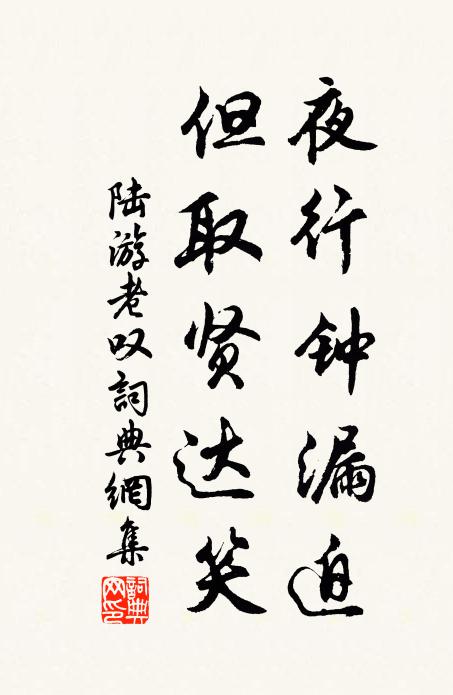 夜行钟漏迫
但取贤达笑
陆游老叹詞典網集
詞典网印